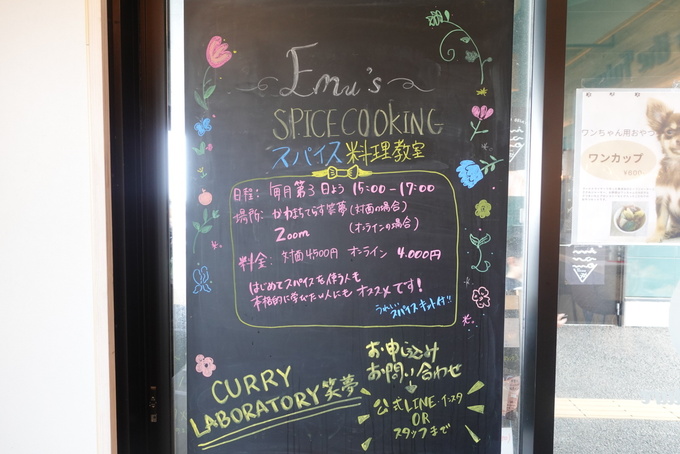 Emu's
SPICE COOKING
スパイス料理教室
日程: 毎月第3日よう 15:00-17:00
場所: かわまちてらす笑夢(対面の場合)
Zoom (オンラインの場合)
料金: 対面4500円 オンライン 4.000円
はじめてスパイスを使う人も
本格的に学びたい人にもオススメです!
うれしいスパイスキット付!!
CURRY
LABORATORY 笑夢
お申し込み
お問い合わせ
公式LINE・インスタ
OR
スタッフまで
ワンちゃん用おやつ
ワンカップ